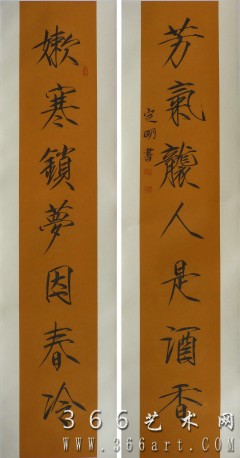 嫰寒鎖夢因春冷
芳氣襲人是酒香
定明書
366艺术网
www.366art.com